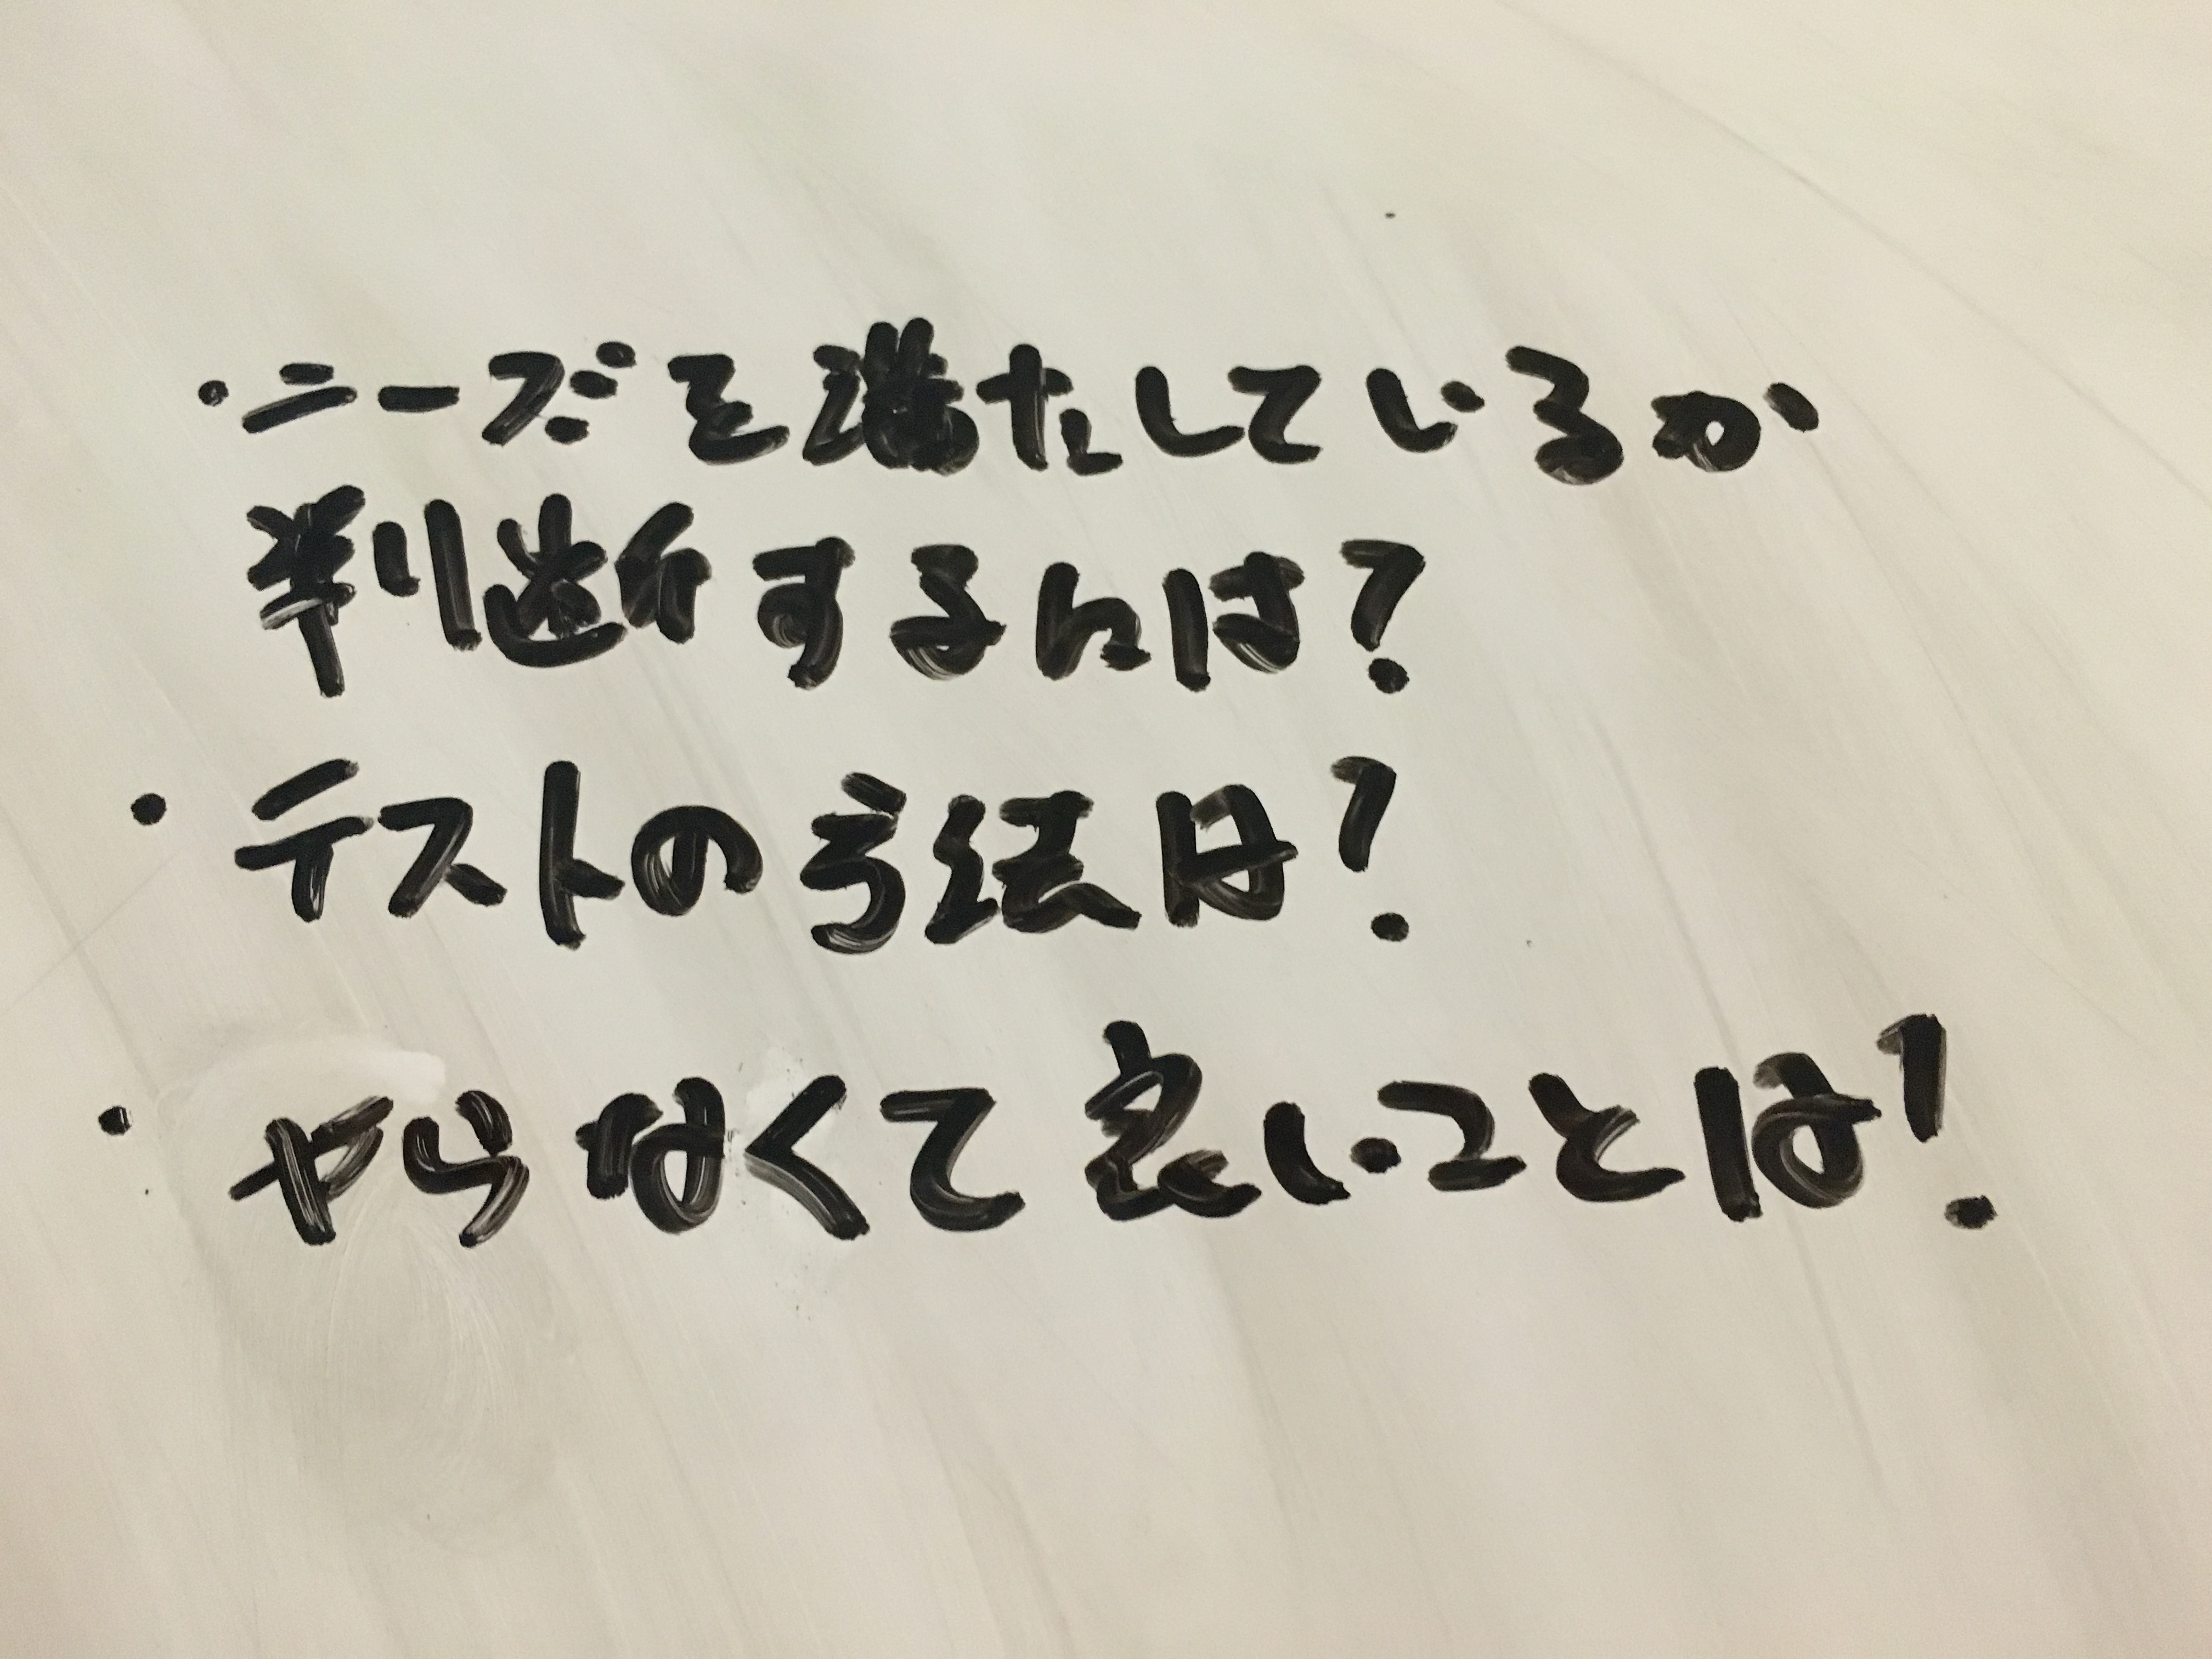 ・ニーズを満たしているか
判断するんは?
・テストの方法は?
・やらなくて良いことは!